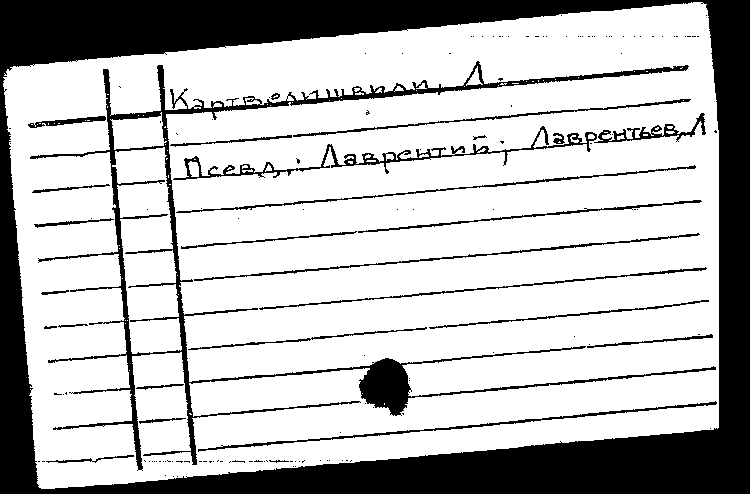 Картвелишвили, Л.
Псевд.: Лаврентий; Лаврентьев, Л.